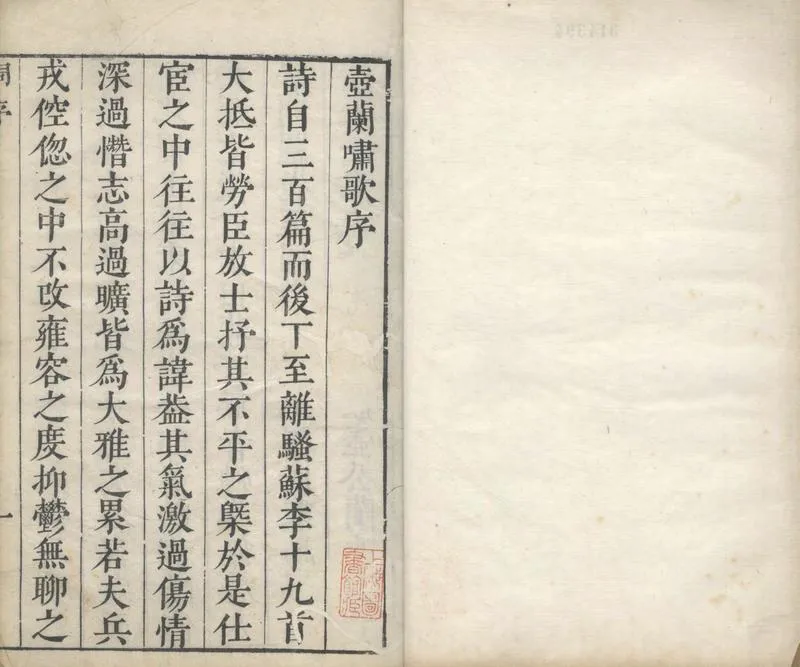 壺蘭嘯歌序
詩自三百篇而後丅至離騷蘇李十九首
大抵皆勞臣放士抒其不平之槩於是仕
宦之中往往以詩爲諱葢其氣激過傷情
深過憯志高過曠皆爲大雅之累若夫兵
戎倥傯之中不改雍容之度抑鬱無聊之
序
一
上海圖
書館臧